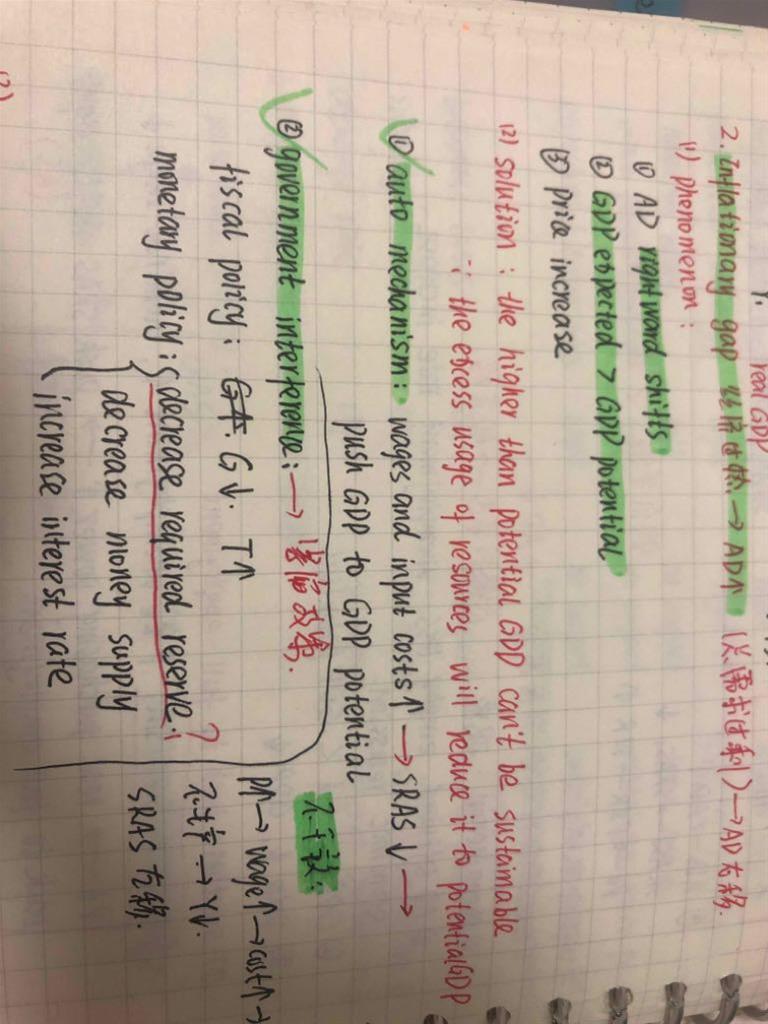 Y.
real GDP
2. Inflationary gap 经济过热 → AD↑ (总需求过剩) → AD右移.
(1) phenomenon:
① AD rightward shifts
② GDP expected > GDP potential
③ price increase
(2) solution: the higher than potential GDD can't be sustainable
∵ the excess usage of resources will reduce it to potential GDP
① auto mechanism: wages and input costs↑ → SRAS ↓ →
push GDP to GDP potential
② government interference: → 紧缩政策.
fiscal policy: G↓. T↑
monetary policy: decrease required reserve.?
decrease money supply
increase interest rate
不干预:
P↑ → wage↑ → cost↑ →
不生产 → Y↓.
SRAS 左移.
(2)